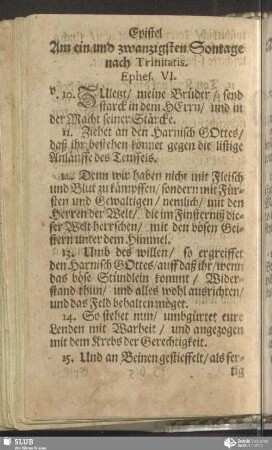 Epistel
Am ein und zwanzigsten Sontage
nach Trinitatis.
Ephes. VI.
v. 10. ZUletzt / meine Brüder / seyd
starck in dem HErrn / und in
der Macht seiner Stärcke.
11. Ziehet an den Harnisch GOttes /
daß ihr bestehen könnet gegen die listige
Anläuffe des Teuffels.
12. Denn wir haben nicht mit Fleisch
und Blut zu kämpffen / sondern mit Für-
sten und Gewaltigen / nemlich / mit den
Herren der Welt / die im Finsterniß die-
ser Welt herrschen / mit den bösen Gei-
stern unter dem Himmel.
13. Umb des willen / so ergreiffet
den Harnisch GOttes / auff daß ihr / wenn
das böse Stündlein kommt / Wider-
stand thun / und alles wohl ausrichten /
und das Feld behalten möget.
14. So stehet nun / umbgürtet eure
Lenden mit Warheit / und angezogen
mit dem Krebs der Gerechtigkeit.
15. Und an Beinen gestieffelt / als fer-
tig
SLUB
Wir führen Wissen.